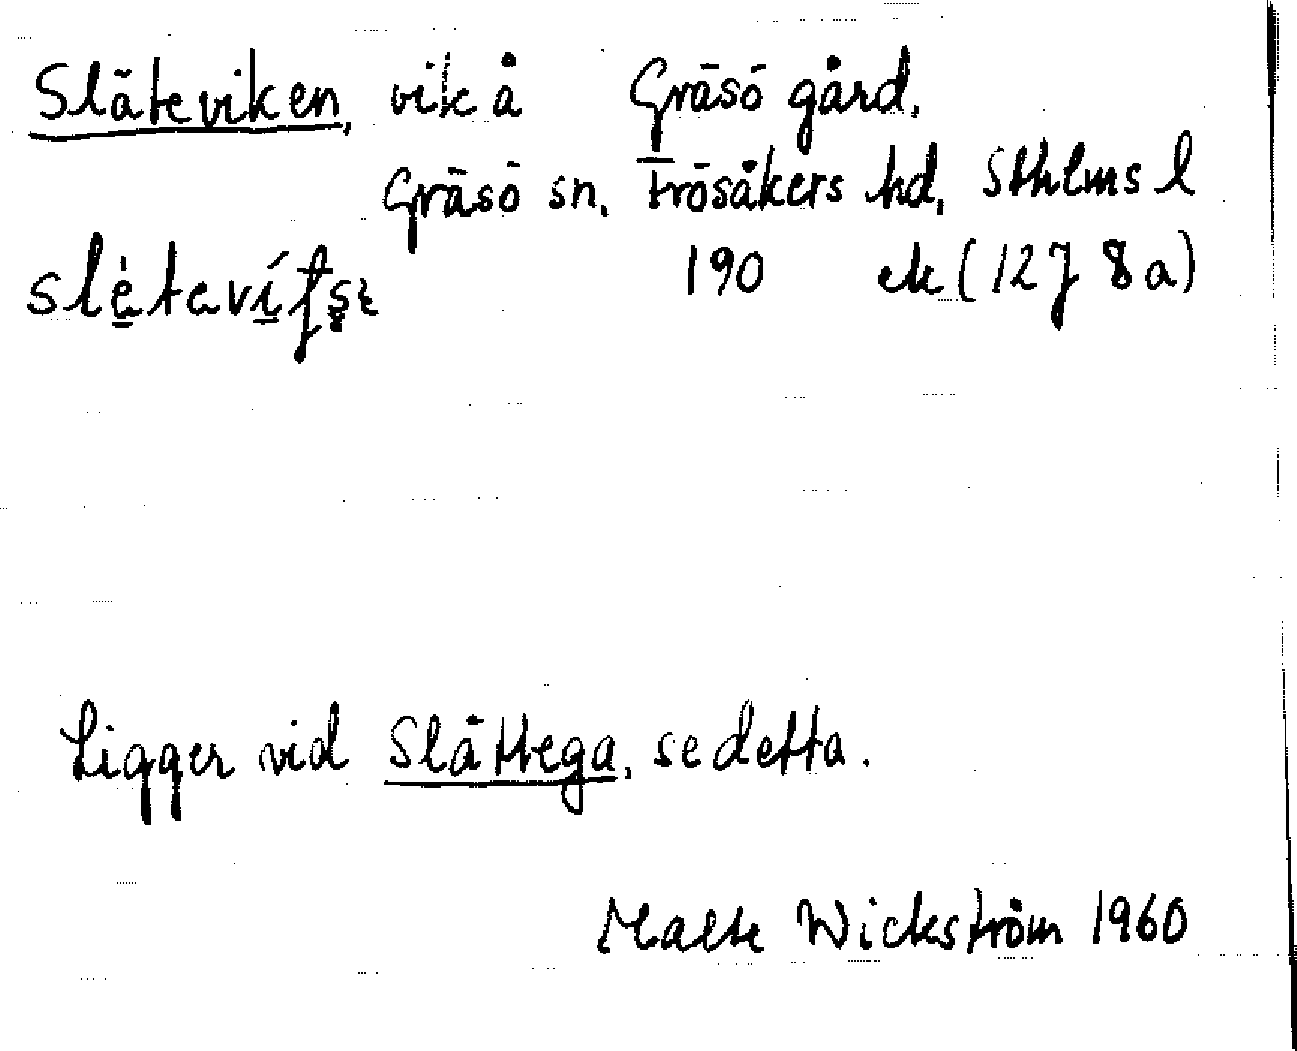 Släteviken, vik å Gräsö gård,
Gräsö sn, Frösåkers hd, Sthlms l
190 ek (12J 8a)
Ligger vid Slättega, se detta.
Malte Wickström 1960